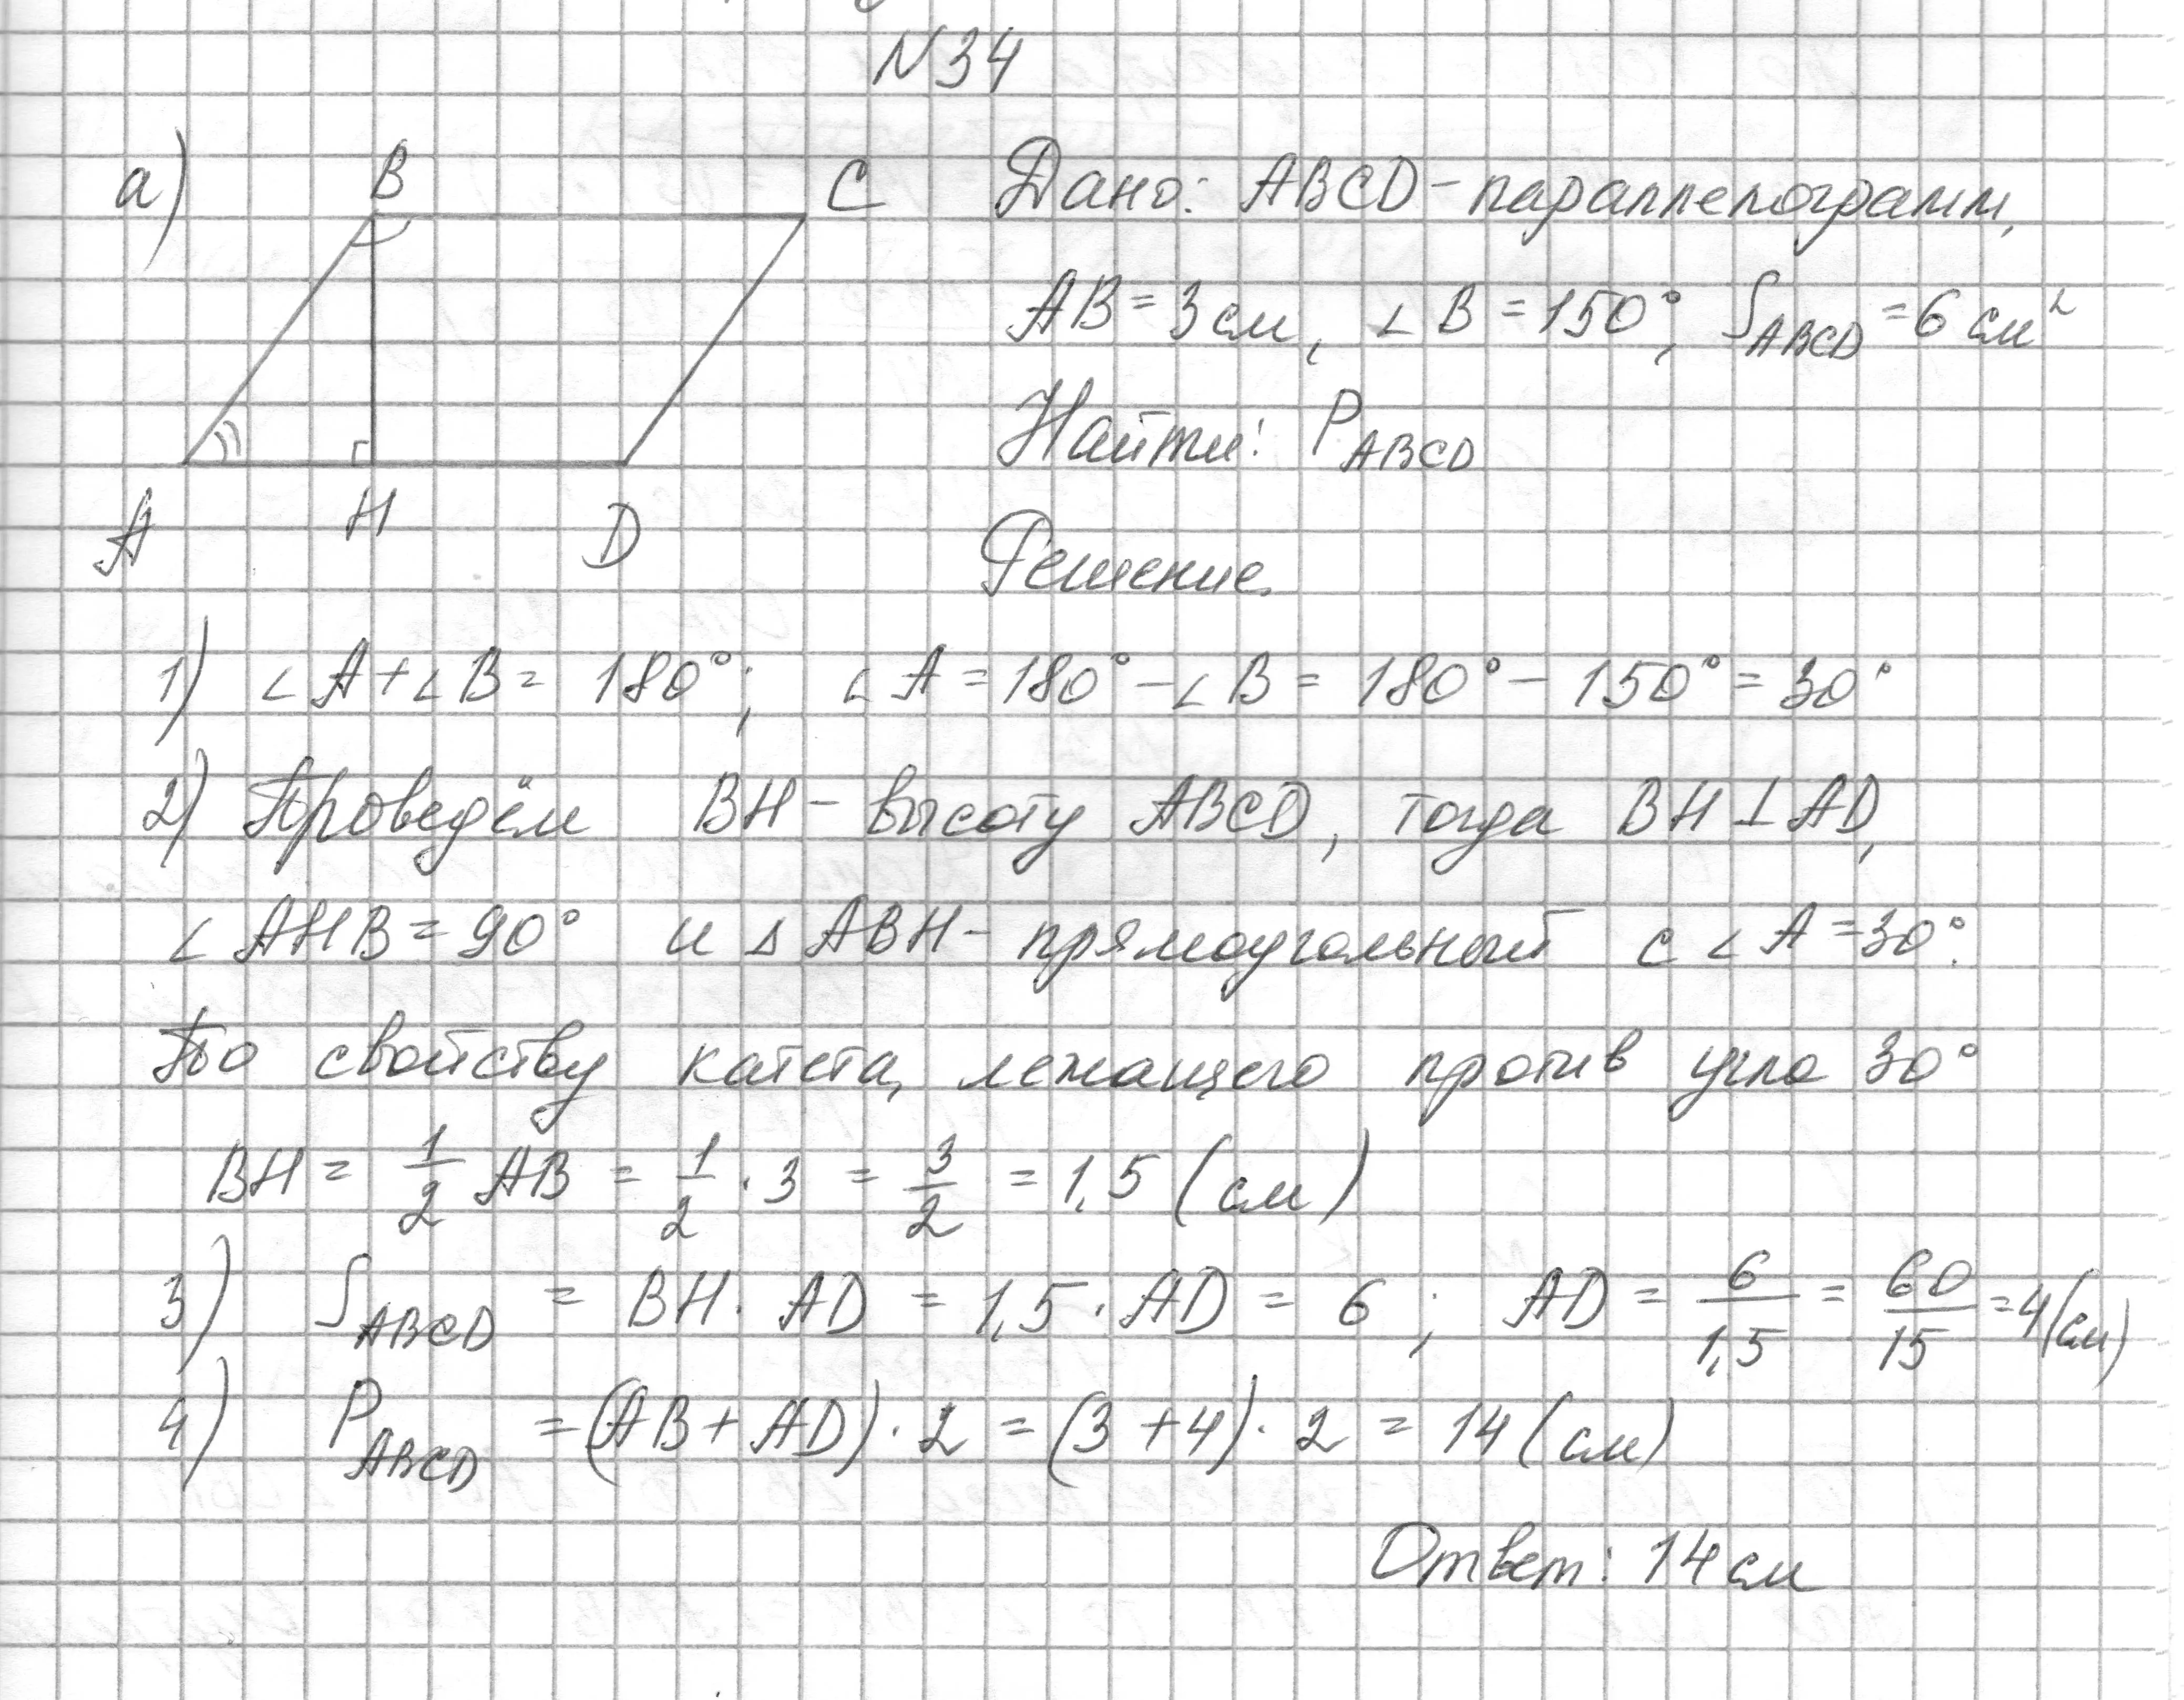 N34
а) B C Дано: ABCD - параллелограмм,
AB = 3 см, ∠B = 150°, S_ABCD = 6 см²
Найти: P_ABCD
A H D Решение.
1) ∠A + ∠B = 180°; ∠A = 180° - ∠B = 180° - 150° = 30°
2) Проведём BH - высоту ABCD, тогда BH ⊥ AD,
∠AHB = 90° и △ABH - прямоугольный с ∠A = 30°.
По свойству катета, лежащего против угла 30°
BH = 1/2 AB = 1/2 · 3 = 3/2 = 1,5 (см)
3) S_ABCD = BH · AD = 1,5 · AD = 6; AD = 6/1,5 = 60/15 = 4 (см)
4) P_ABCD = (AB + AD) · 2 = (3 + 4) · 2 = 14 (см)
Ответ: 14 см